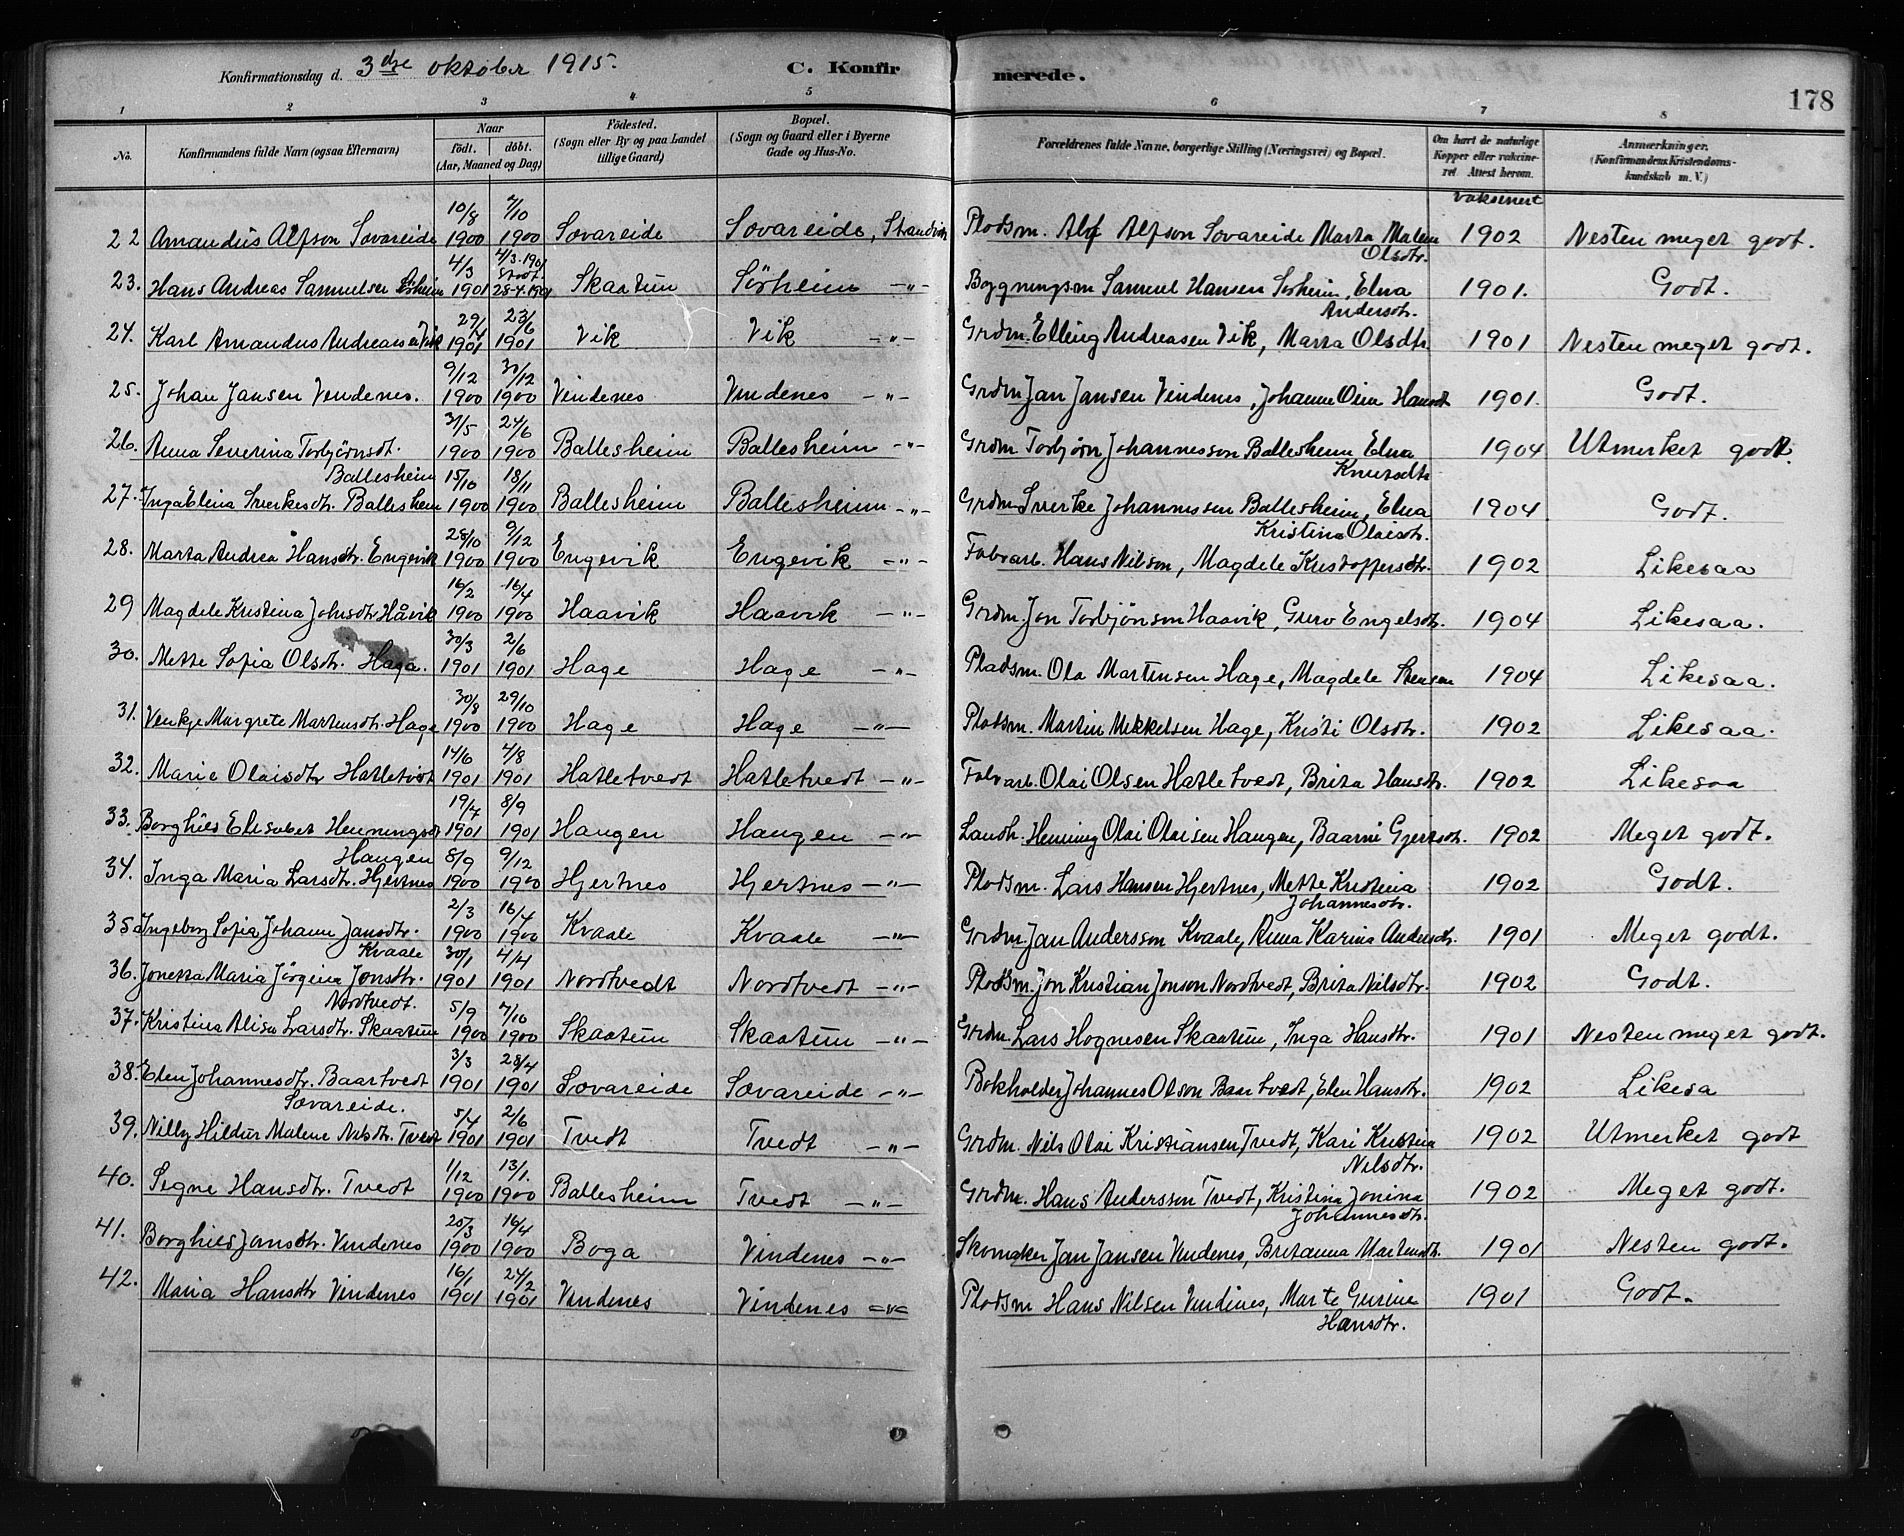 Konfirmationsdag d. 3dje oktober 1915. C. Konfirmerede. 178
1 2 3 4 5 6 7 8
No. Konfirmandens fulde Navn (ogsaa Efternavn) Naar født. døbt. (Aar, Maaned og Dag) Fødested. (Sogn eller By og paa Landet tillige Gaard) Bopæl. (Sogn og Gaard eller i Byerne Gade og Hus-No. Forældrenes fulde Navne, borgerlige Stilling (Næringsvei) og Bopæl. Om havt de naturlige Kopper eller vakcineret. Attest herom. Anmærkninger. (Konfirmandens Kristendomskundskab m. V.)
vaksenert
22 Amandus Alfson Sovareide 10/8 1900 7/10 1900 Sovareide Sovareide, Strandvik Pladsm. Alf Alfson Sovareide Marta Malene Olsdtr. 1902 Nesten meget godt.
23. Hans Andreas Samuelsen Sörheim 4/3 1901 4/3-1901 28-4-1901 Skaatun Sörheim -"- Bygningsm Samuel Hansen Sörheim, Elna Andersdtr. 1901. Godt.
24. Karl Amandus Andreassen Vik 29/4 1901 23/6 1901 Vik Vik -"- Grdm. Elling Andreasen Vik, Marta Olsdtr 1901 Nesten meget godt.
25. Johan Jansen Vindenes. 9/12 1900 30/12 1900 Vindenes Vindenes -"- Grdm Jan Jansen Vindenes, Johanne Oline Hansdt 1901. Godt.
26. Anna Severina Torbjörnsdt. Ballesheim 31/5 1900 24/6 1900 Ballesheim Ballesheim -"- Grdm Torbjörn Johannesson Ballesheim Elna Knutsdtr 1904 Utmerket godt.
27. Inga Elina Sverkesdtr. Ballesheim 15/10 1900 18/11 1900 Ballesheim Ballesheim -"- Grdm Sverke Johannessen Ballesheim, Elna Kristina Olaisdtr. 1904 Godt.
28. Marta Andrea Hansdtr. Engevik 28/10 1900 9/12 1900 Engevik Engevik -"- Fabrarb. Hans Nilson, Magdele Kristoffersdtr. 1902 Likesaa
29 Magdele Kristina Johnsdtr Håvik 16/2 1900 16/4 1900 Haavik Haavik -"- Grdm. Jon Torbjönson Haavik, Guro Engelsdtr. 1904 Likesaa.
30. Mette Sofia Olsdtr. Haga. 30/3 1901 2/6 1901 Hage Hage -"- Pladsm. Ola Martinsen Hage, Magdele 1904 Likesaa.
31. Venkje Margrete Martensdtr. Hage 30/8 1900 29/10 1900 Hage Hage -"- Pladsm. Martin Mikkelsen Hage, Kristi Olsdtr. 1902 Likesaa.
32. Marie Olaisdtr Hatletvedt 14/6 1901 4/8 1901 Hatletvedt Hatletvedt -"- Fabrarb. Olai Olsen Hatletvedt, Brita Hansdtr. 1902 Likesaa
33. Borghild Elisabet Henningsdtr Haugen 19/7 1901 8/9 1901 Haugen Haugen -"- Landh. Henning Olai Olaisen Haugen, Baarni Gjertsdtr. 1902 Meget godt.
34. Inga Maria Larsdtr. Hjertnes 8/9 1900 9/12 1900 Hjertnes Hjertnes -"- Pladsm. Lars Hansen Hjertnes, Mette Kristina Johannesdtr. 1902 Godt.
35 Ingeborg Sofia Johanne Jansdtr. Kvaale 2/3 1900 16/4 1900 Kvaale Kvaale -"- Grdm Jan Andersson Kvaale, Anna Karina Andersdtr. 1901 Meget godt.
36. Jonetta Maria Jörgina Jonsdtr. Nordtvedt. 30/1 1901 4/4 1901 Nordtvedt Nordtvedt -"- Pladsm. Jon Kristian Jonson Nordtvedt, Brita Nilsdtr. 1902 Godt.
37. Kristina Alisa Larsdtr. Skaatun 5/9 1900 7/10 1900 Skaatun Skaatun -"- Grdm. Lars Hognesen Skaatun, Inga Hansdtr. 1901 Nesten meget godt.
38. Elen Johannesdtr. Baartvedt Sovareide. 3/3 1901 28/4 1901 Sovareide Sovareide -"- Bokholder Johannes Olson Baartvedt, Elen Hansdtr. 1902 Likesa
39. Nilly Hildur Malene Nilsdtr. Tvedt 5/4 1901 2/6 1901 Tvedt Tvedt -"- Grdm. Nils Olai Kristiansen Tvedt, Kari Kristina Nilsdtr. 1902 Utmerket godt
40. Segne Hansdtr. Tvedt 1/12 1900 13/1. 1900 Ballesheim Tvedt -"- Grdm. Hans Andersson Tvedt, Kristina Jonina Johannesdtr. 1902 Meget godt.
41. Borghild Jansdtr. Vindenes 25/3 1900 16/4 1900 Boga Vindenes -"- Skomaker Jan Jansen Vindenes, Britanna Martensdtr. 1901 Nesten godt.
42. Maria Hansdtr Vindenes 16/1 1901 24/2 1901 Vindenes Vindenes -"- Pladsm Hans Nilsen Vindines, Marte Gurine Hansdtr. 1901 Godt.